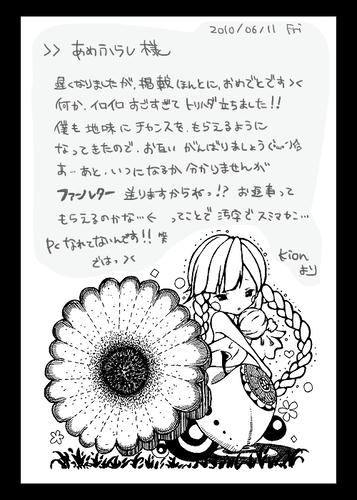 2010/06/11 Fri
>> あめふらし 様
遅くなりましたが、掲載ほんとに、おめでとですゝ
何か、イロイロ すごすぎて トリハダ 立ちました!!
僕も 地味に チャンスを、もらえるように
なってきたので、お互い がんばりましょう
あ…あと、いつになるか 分かりませんが
ファンレター 送りますからねっ!? お返事って
もらえるのかな…く ってことで 汚字で スミマセン…
pc なれてないんです!! 笑
ではっゝ
Kion
より